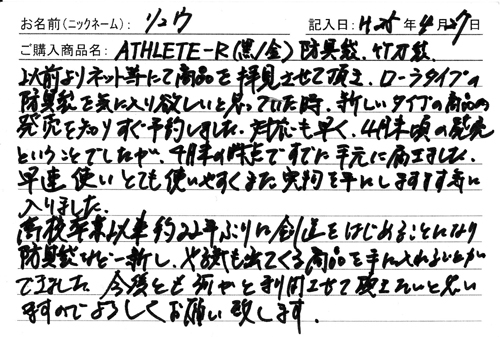 お名前(ニックネーム): リュウ 記入日: H25年4月27日
ご購入商品名: ATHLETE-R(黒/金)防具袋、竹刀袋
以前よりネット等にて商品を拝見させて頂き、ローラタイプの
防具袋を気に入り欲しいと思っていた時、新しいタイプの商品の
発売を知りすぐ予約しました。対応も早く、4月末頃の発売
ということでしたが、4月末の時点ですでに手元に届きました。
早速使いとても使いやすくまた実物を手にしますます気に
入りました。
高校卒業以来約22年ぶりに剣道をはじめることになり
防具袋など一新し、やる気も出てくる商品を手に入れることが
できました。今後とも何かと利用させて頂きたいと思い
ますのでよろしくお願い致します。